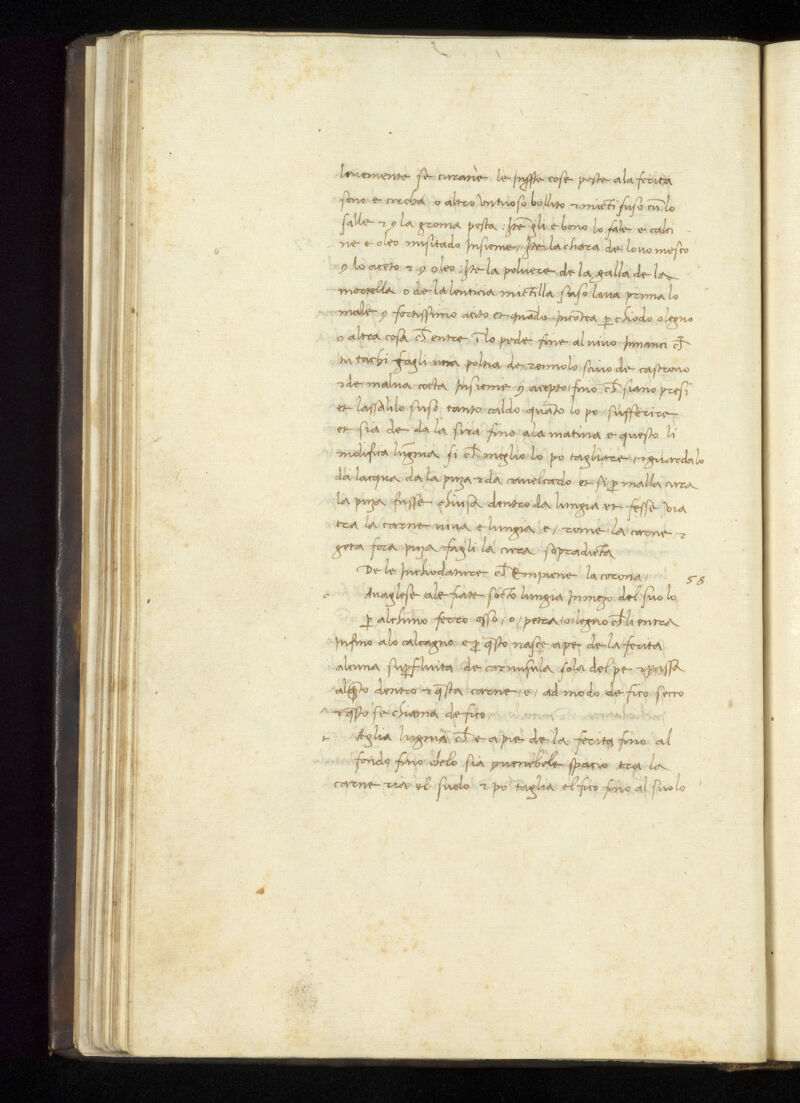 levemente se curane le infrste cose poste ala ferita
sono e cicuta o altro untuoso bollito et mictisi suso cū lo
salle et y la groma pesta : Itē gli e bono lo sale e calci
ne e oleo misitado insieme, Ite la chiara de lovo mesco
y lo aceto et y oleo : Ite la polvere de la galla de la
mortella o de la lenticia mictilla suso lava prima lo
male y fortissimo acito et quādo incōtra p chiodo o legno
o altra cosa ch entre ī lo pede fine al vivo inanci ch
tu tachi fagli una poltia de remolo scivo de castrono
et de malva cocta insieme y acepto fino ch siano presi
et lassalilo suso tanto caldo quāto lo po sufferire
et sia de da la sira fino ala matina e questo li
molifica lūgnia si ch meglio lo po tagliare et guardalo
da lacqua da la puza et da cavelcado et si p malla cura
la puza fusse chiusa dentro da lungia et fesse via
tra la carne viva e lungia e / rome la carne et
geta fora puza fagli la cura sopradicta
De le Inchiodature ch Empieno la corona / 58
Avaglese ale fiate socto lungia in mezo del suolo
p alchuno ferro osso / o / petra / o / legno ch li entra
infino alo calcagno e p qsto nasce a pe de la ferita
alcuna supfluita de carnusula sola del pe et passa
alqto dentro et qsta carne / e / ad modo de fico secco
et qsto se chiama de fico
t Aglia lugnia ch e a pie de la ferita fino al
fondo fino chelo sia yvenebele spacio tra la
carne ria el suolo et po taglia el fico fino al suolo